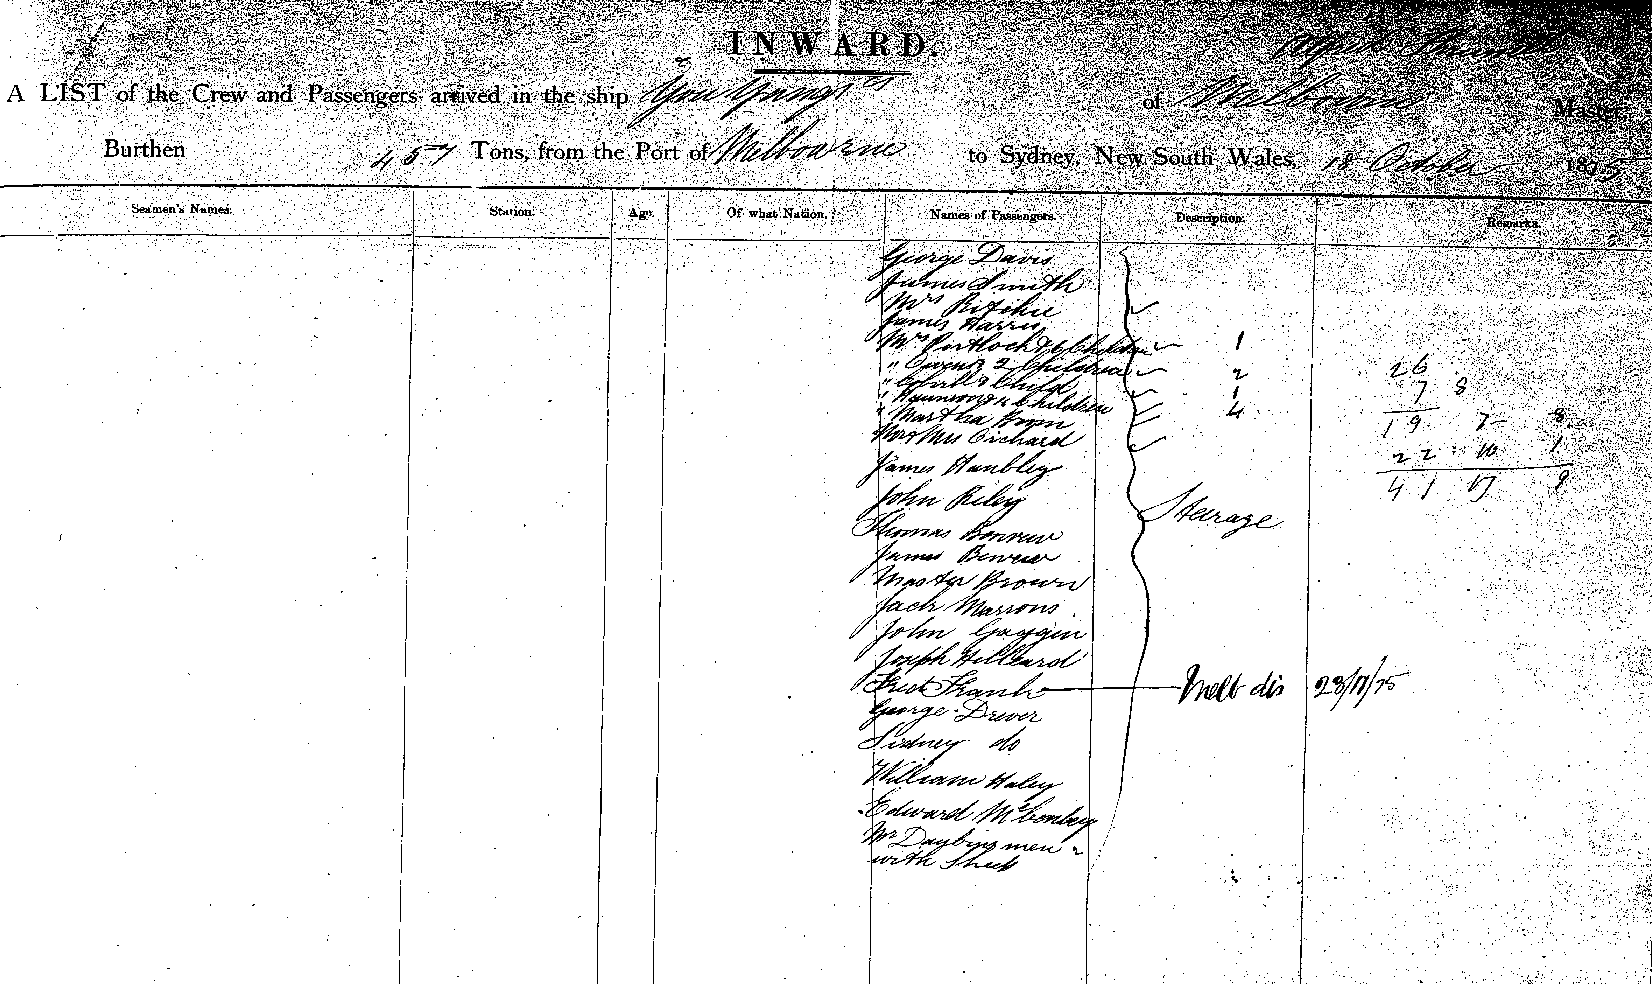 INWARD.
A LIST of the Crew and Passengers arrived in the ship You Yangs of Melbourne Master
Burthen 457 Tons, from the Port of Melbourne to Sydney, New South Wales, 18 October 1875
Seamen's Names. Station. Age. Of what Nation. Names of Passengers. Description. Remarks.
George Davis
James Smith
Mrs Ritchie
James Harris
Mrs Portlock & 6 Children 1
" Owen & 2 Children 2 26
" & Child 1 7 8
" & 4 Children 4 19 7 8
" Martha
Mr & Mrs Orchard 22 10 1
James Hanbley 41 17 9
John Riley
Steerage
Thomas
James
Master Brown
Jack Marrons
John Gaggin
Joseph Hilleard
Fred Frank Melb dis 23/11/75
George Drever
Sidney do
William Haley
Edward McConley
Mr men
with